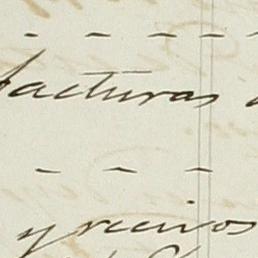 - - - -
facturas
- - -
y recivos